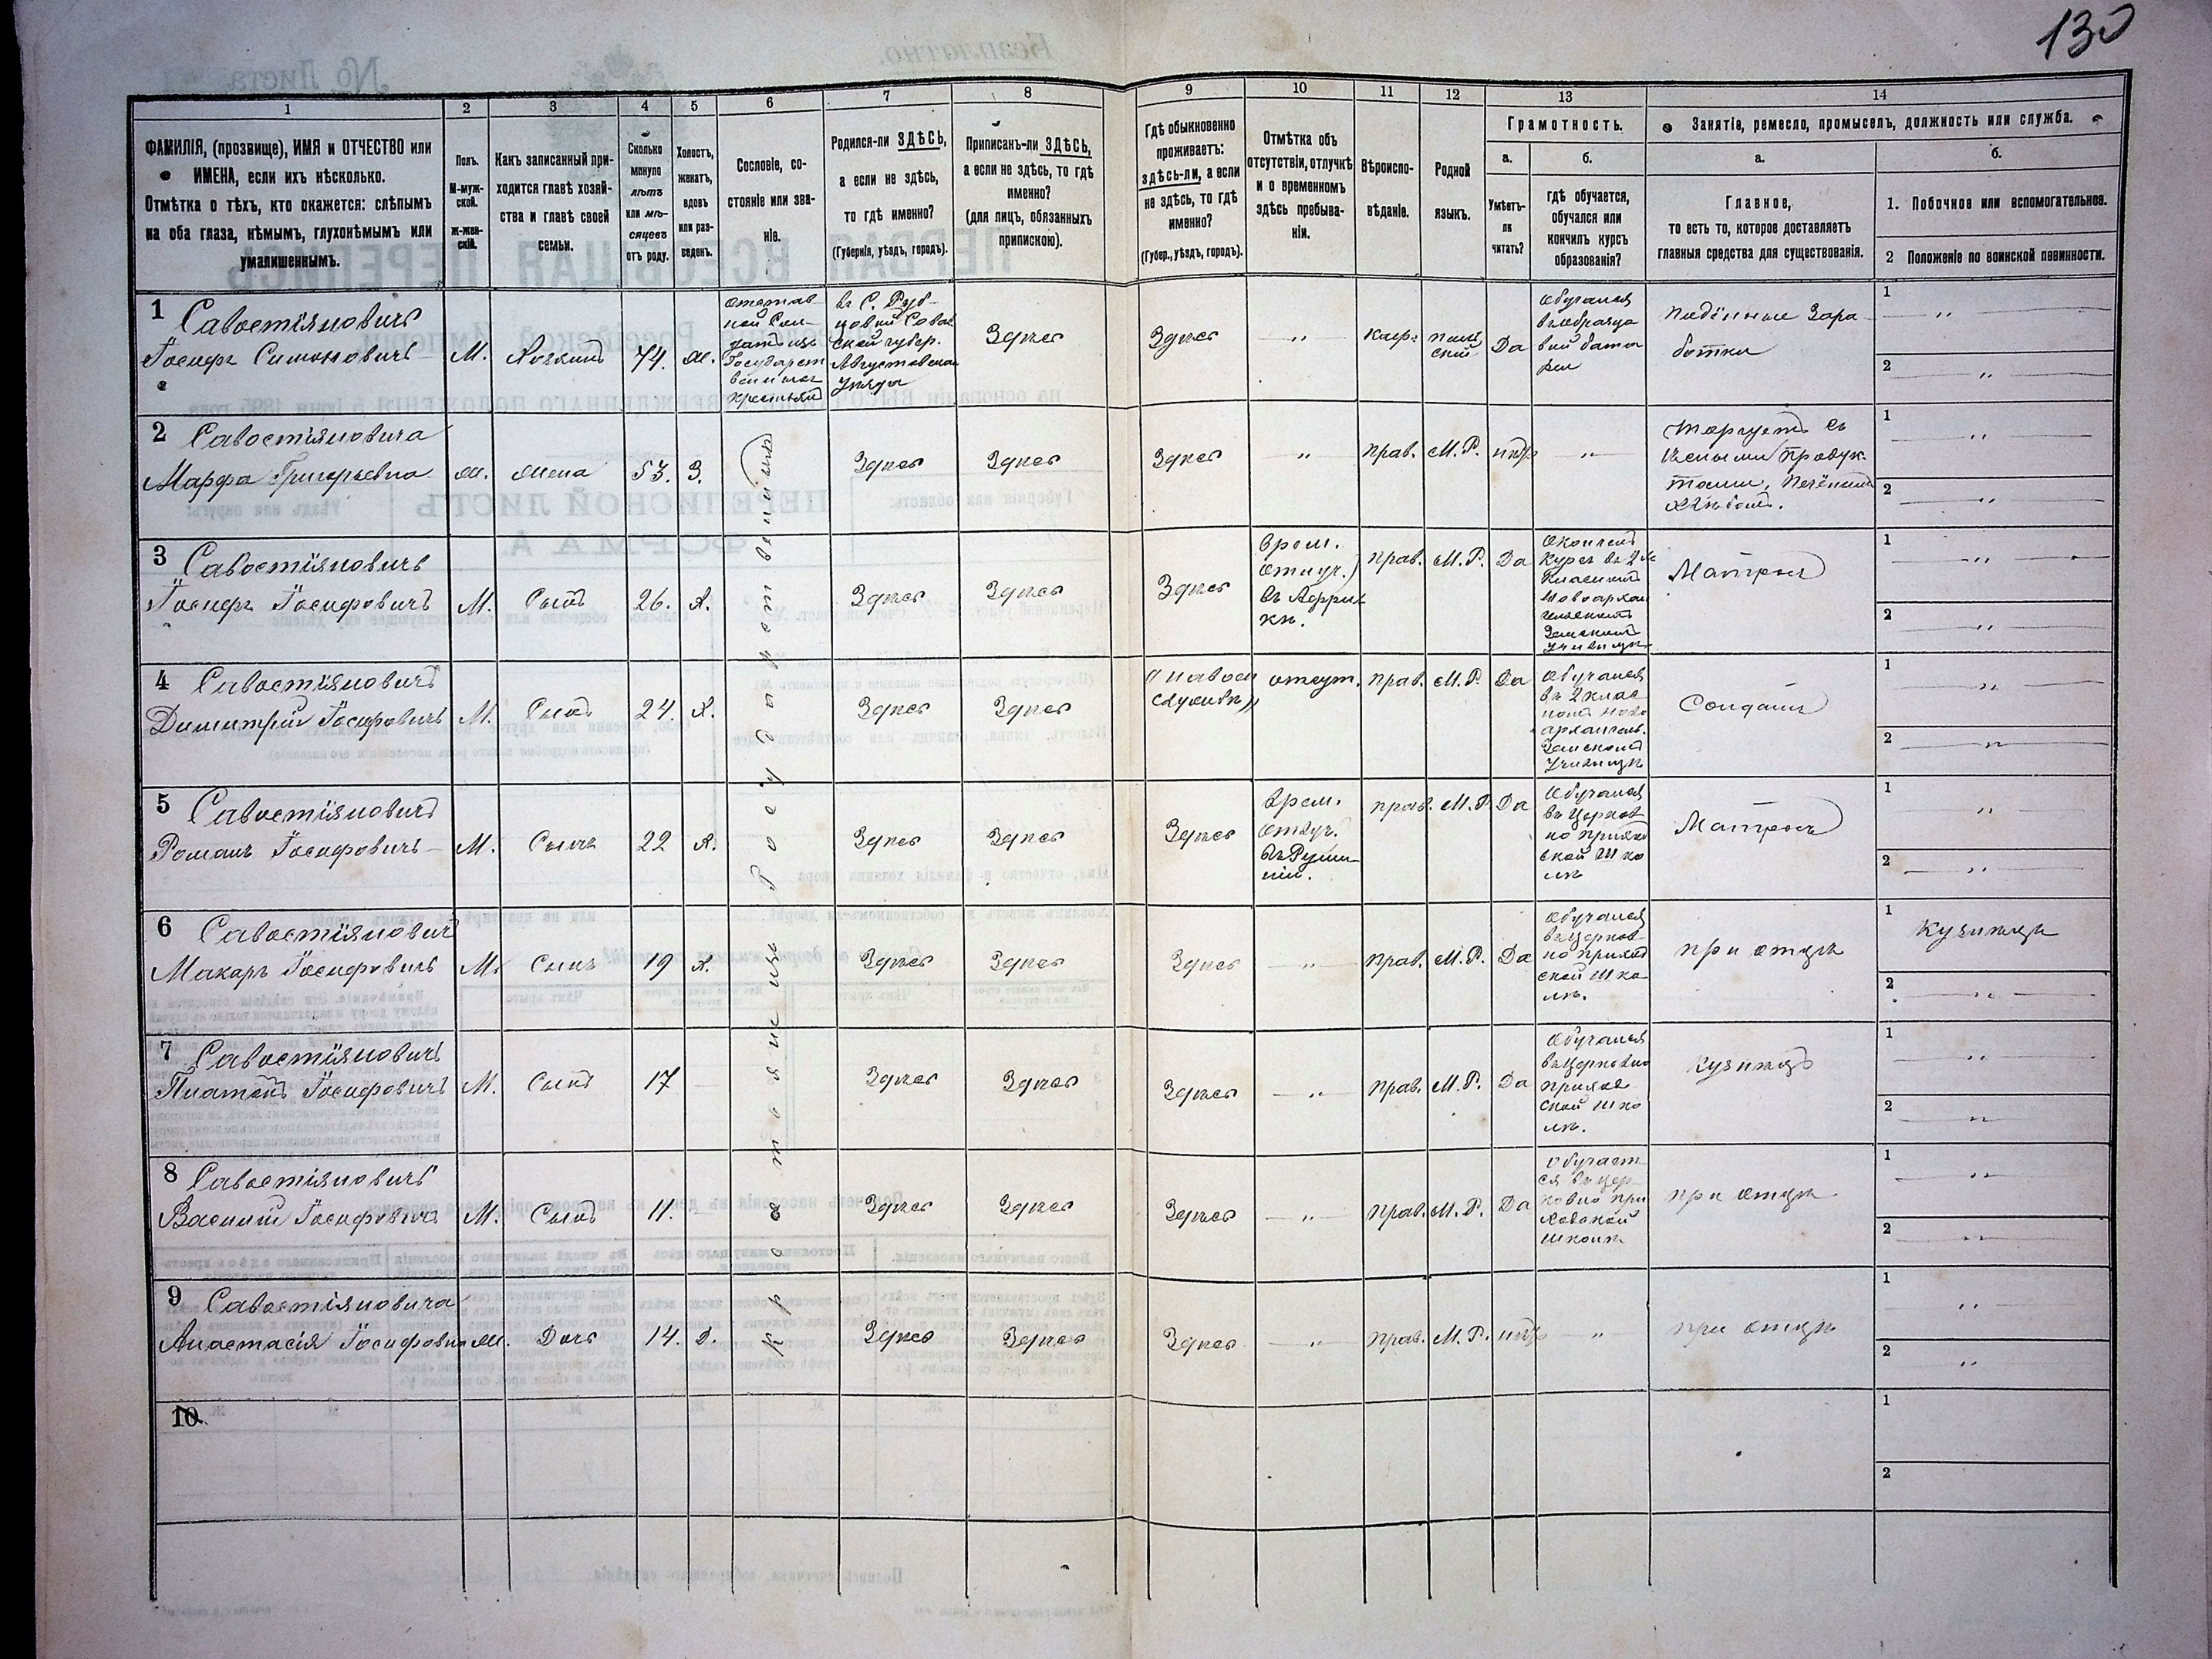 130
1
2
3
4
5
6
7
8
9
10
11
12
13
14
ФАМИЛІЯ, (прозвище), ИМЯ и ОТЧЕСТВО или
ИМЕНА, если ихъ нѣсколько.
Отмѣтка о тѣхъ, кто окажется: слѣпымъ
на оба глаза, нѣмымъ, глухонѣмымъ или
умалишеннымъ.
Полъ.
М-муж-
ской.
Ж-жен-
скій.
Какъ записанный при-
ходится главѣ хозяй-
ства и главѣ своей
семьи.
Сколько
минуло
лѣтъ
или мѣ-
сяцевъ
отъ роду.
Холостъ,
женатъ,
вдовъ
или раз-
веденъ.
Сословіе, со-
стояніе или зва-
ніе.
Родился-ли ЗДѢСЬ,
а если не здѣсь,
то гдѣ именно?
(Губернія, уѣздъ, городъ).
Приписанъ-ли ЗДѢСЬ,
а если не здѣсь, то гдѣ
именно?
(для лицъ, обязанныхъ
припискою).
Гдѣ обыкновенно
проживаетъ:
здѣсь-ли, а если
не здѣсь, то гдѣ
именно?
(Губер., уѣздъ, городъ).
Отмѣтка объ
отсутствіи, отлучкѣ
и о временномъ
здѣсь пребыва-
ніи.
Вѣроиспо-
вѣданіе.
Родной
языкъ.
Грамотность.
а.
Умѣетъ-
ли
читать?
б.
гдѣ обучается,
обучался или
кончилъ курсъ
образованія?
Занятіе, ремесло, промыселъ, должность или служба.
а.
Главное,
то есть то, которое доставляетъ
главныя средства для существованія.
б.
1. Побочное или вспомогательное.
2 Положеніе по воинской повинности.
1 Савостіяновичъ
Іосифъ Симоновичъ
М.
Хозяинъ
74.
ж.
отстав
ной Сол-
датъ изъ
Государст
венныхъ
крестьянъ
губер.
Августовскаго
уѣзда
Здѣсь
Здѣсь
"
поль
ской
Да
Обучался
Подённые Зара
ботки
1 "
2 "
2 Савостіяновича
Марфа Григорьевна
ж.
жена
53.
З.
Здѣсь
Здѣсь
Здѣсь
"
прав.
М.Р.
нѣтъ
"
торгуетъ съ
ѣсными продук-
тами, печёнымъ
хлѣбомъ.
1 "
2 "
3 Савостіяновичъ
Іосифъ Іосифовичъ
М.
Сынъ
26.
Х.
Здѣсь
Здѣсь
Здѣсь
врем.
отлуч.
въ Африк
кѣ.
прав.
М.Р.
Да
Окончилъ
Курсъ въ 2 х
Класномъ
Новоархан
гельскомъ
Земскомъ
Училищѣ
Матросъ
1 "
2 "
4 Савостіяновичъ
Димитрій Іосифовичъ
М.
Сынъ
24.
Х.
Здѣсь
Здѣсь
отсут.
прав.
М.Р.
Да
Обучался
въ 2 клас
номъ Ново
архангель.
Земскомъ
Училищѣ
Солдатъ
1 "
2 "
5 Савостіяновичъ
Романъ Іосифовичъ
М.
Сынъ
22
Х.
Здѣсь
Здѣсь
Здѣсь
врем.
отлуч.
въ Румы
ніи.
прав.
М.Р.
Да
Обучался
въ Церков
но приход
ской Шко
лѣ
Матросъ
1 "
2 "
6 Савостіяновичъ
Макаръ Іосифовичъ
М.
Сынъ
19
Х.
Здѣсь
Здѣсь
Здѣсь
"
прав.
М.Р.
Да
Обучался
въ Церков
но приход
ской Шко
лѣ.
при отцѣ
1 Кузнецъ
2 "
7 Савостіяновичъ
Платонъ Іосифовичъ
М.
Сынъ
17
Здѣсь
Здѣсь
Здѣсь
"
прав.
М.Р.
Да
Обучался
въ Церковно
приход
ской шко
лѣ.
Кузнецъ
1 "
2 "
8 Савостіяновичъ
Василій Іосифовичъ
М.
Сынъ
11.
Здѣсь
Здѣсь
Здѣсь
"
прав.
М.Р.
Да
Обучает
ся въ Цер
ковно при
ходской
школѣ
при отцѣ
1 "
2 "
9 Савостіяновича
Анастасія Іосифовна
ж.
Дочь
14.
Д.
Здѣсь
Здѣсь
Здѣсь
"
прав.
М.Р.
нѣтъ
"
при отцѣ
1 "
2 "
10
1
2